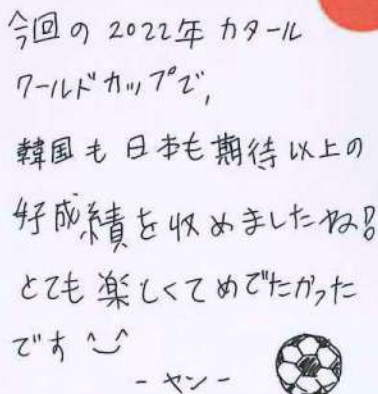 今回の2022年カタール
ワールドカップで,
韓国も日本も期待以上の
好成績を収めましたね!!
とても楽しくてめでたかった
です ^_^
- ヤン -